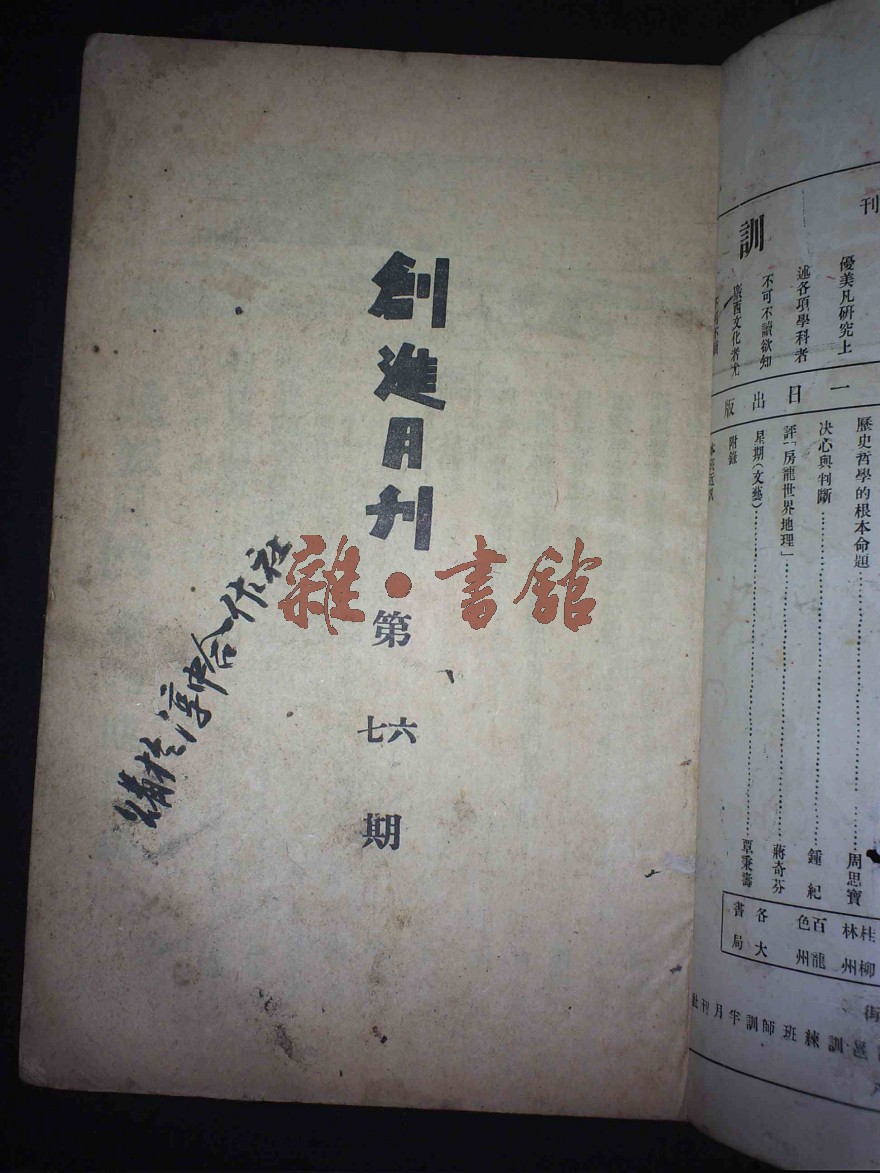 創進月刊
第
七六
期
雜·書館
刊
訓
優美凡研究上
述各項學科者
不可不讀欲知
廣西文化者尤
一日出版
歷史哲學的根本命題……周思寶
決心與判斷……鍾紀
評「房龍世界地理」……蔣奇芬
星期(文藝)……覃秉壽
附錄
桂林
柳州
百色
龍州
各大
書局
街
訓練班師訓半月刊社